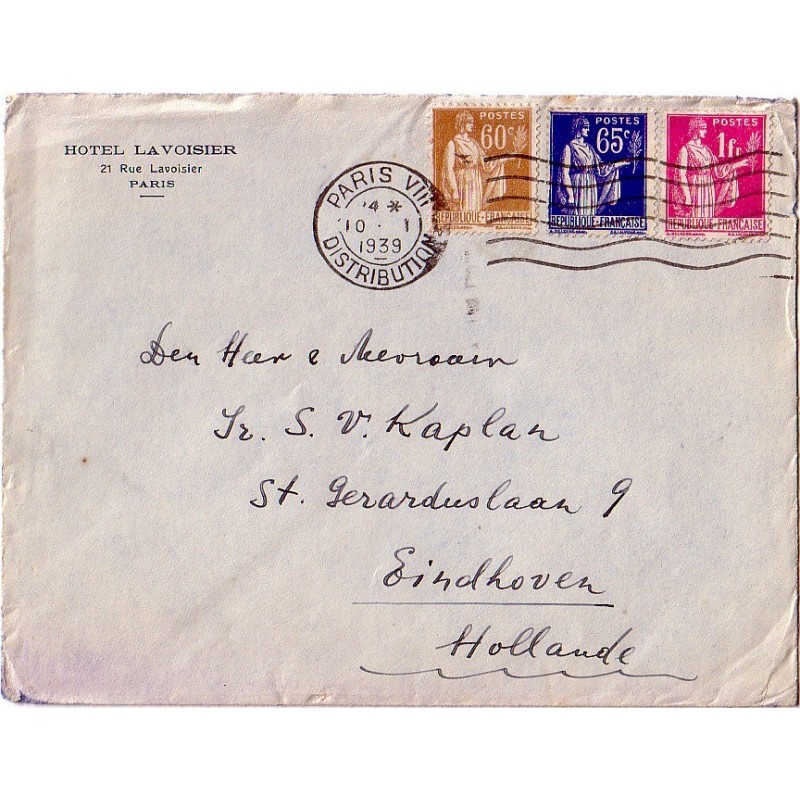 HOTEL LAVOISIER
21 Rue Lavoisier
PARIS
PARIS VIII
'4 *
10 . 1
1939
DISTRIBUTION
60c
POSTES
REPUBLIQUE-FRANÇAISE
POSTES
65c
REPUBLIQUE-FRANÇAISE
POSTES
1fr
REPUBLIQUE-FRANÇAISE
Den Heer & Mevrouw
Ir. S. V. Kaplan
St. Gerarduslaan 9
Eindhoven
Hollande